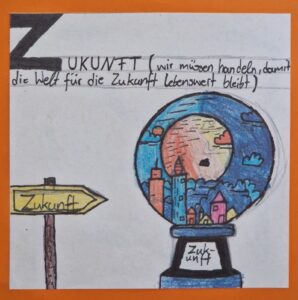 ZUKUNFT (wir müssen handeln, damit
die Welt für die Zukunft lebenswert bleibt)
Zukunft
Zuk-
unft